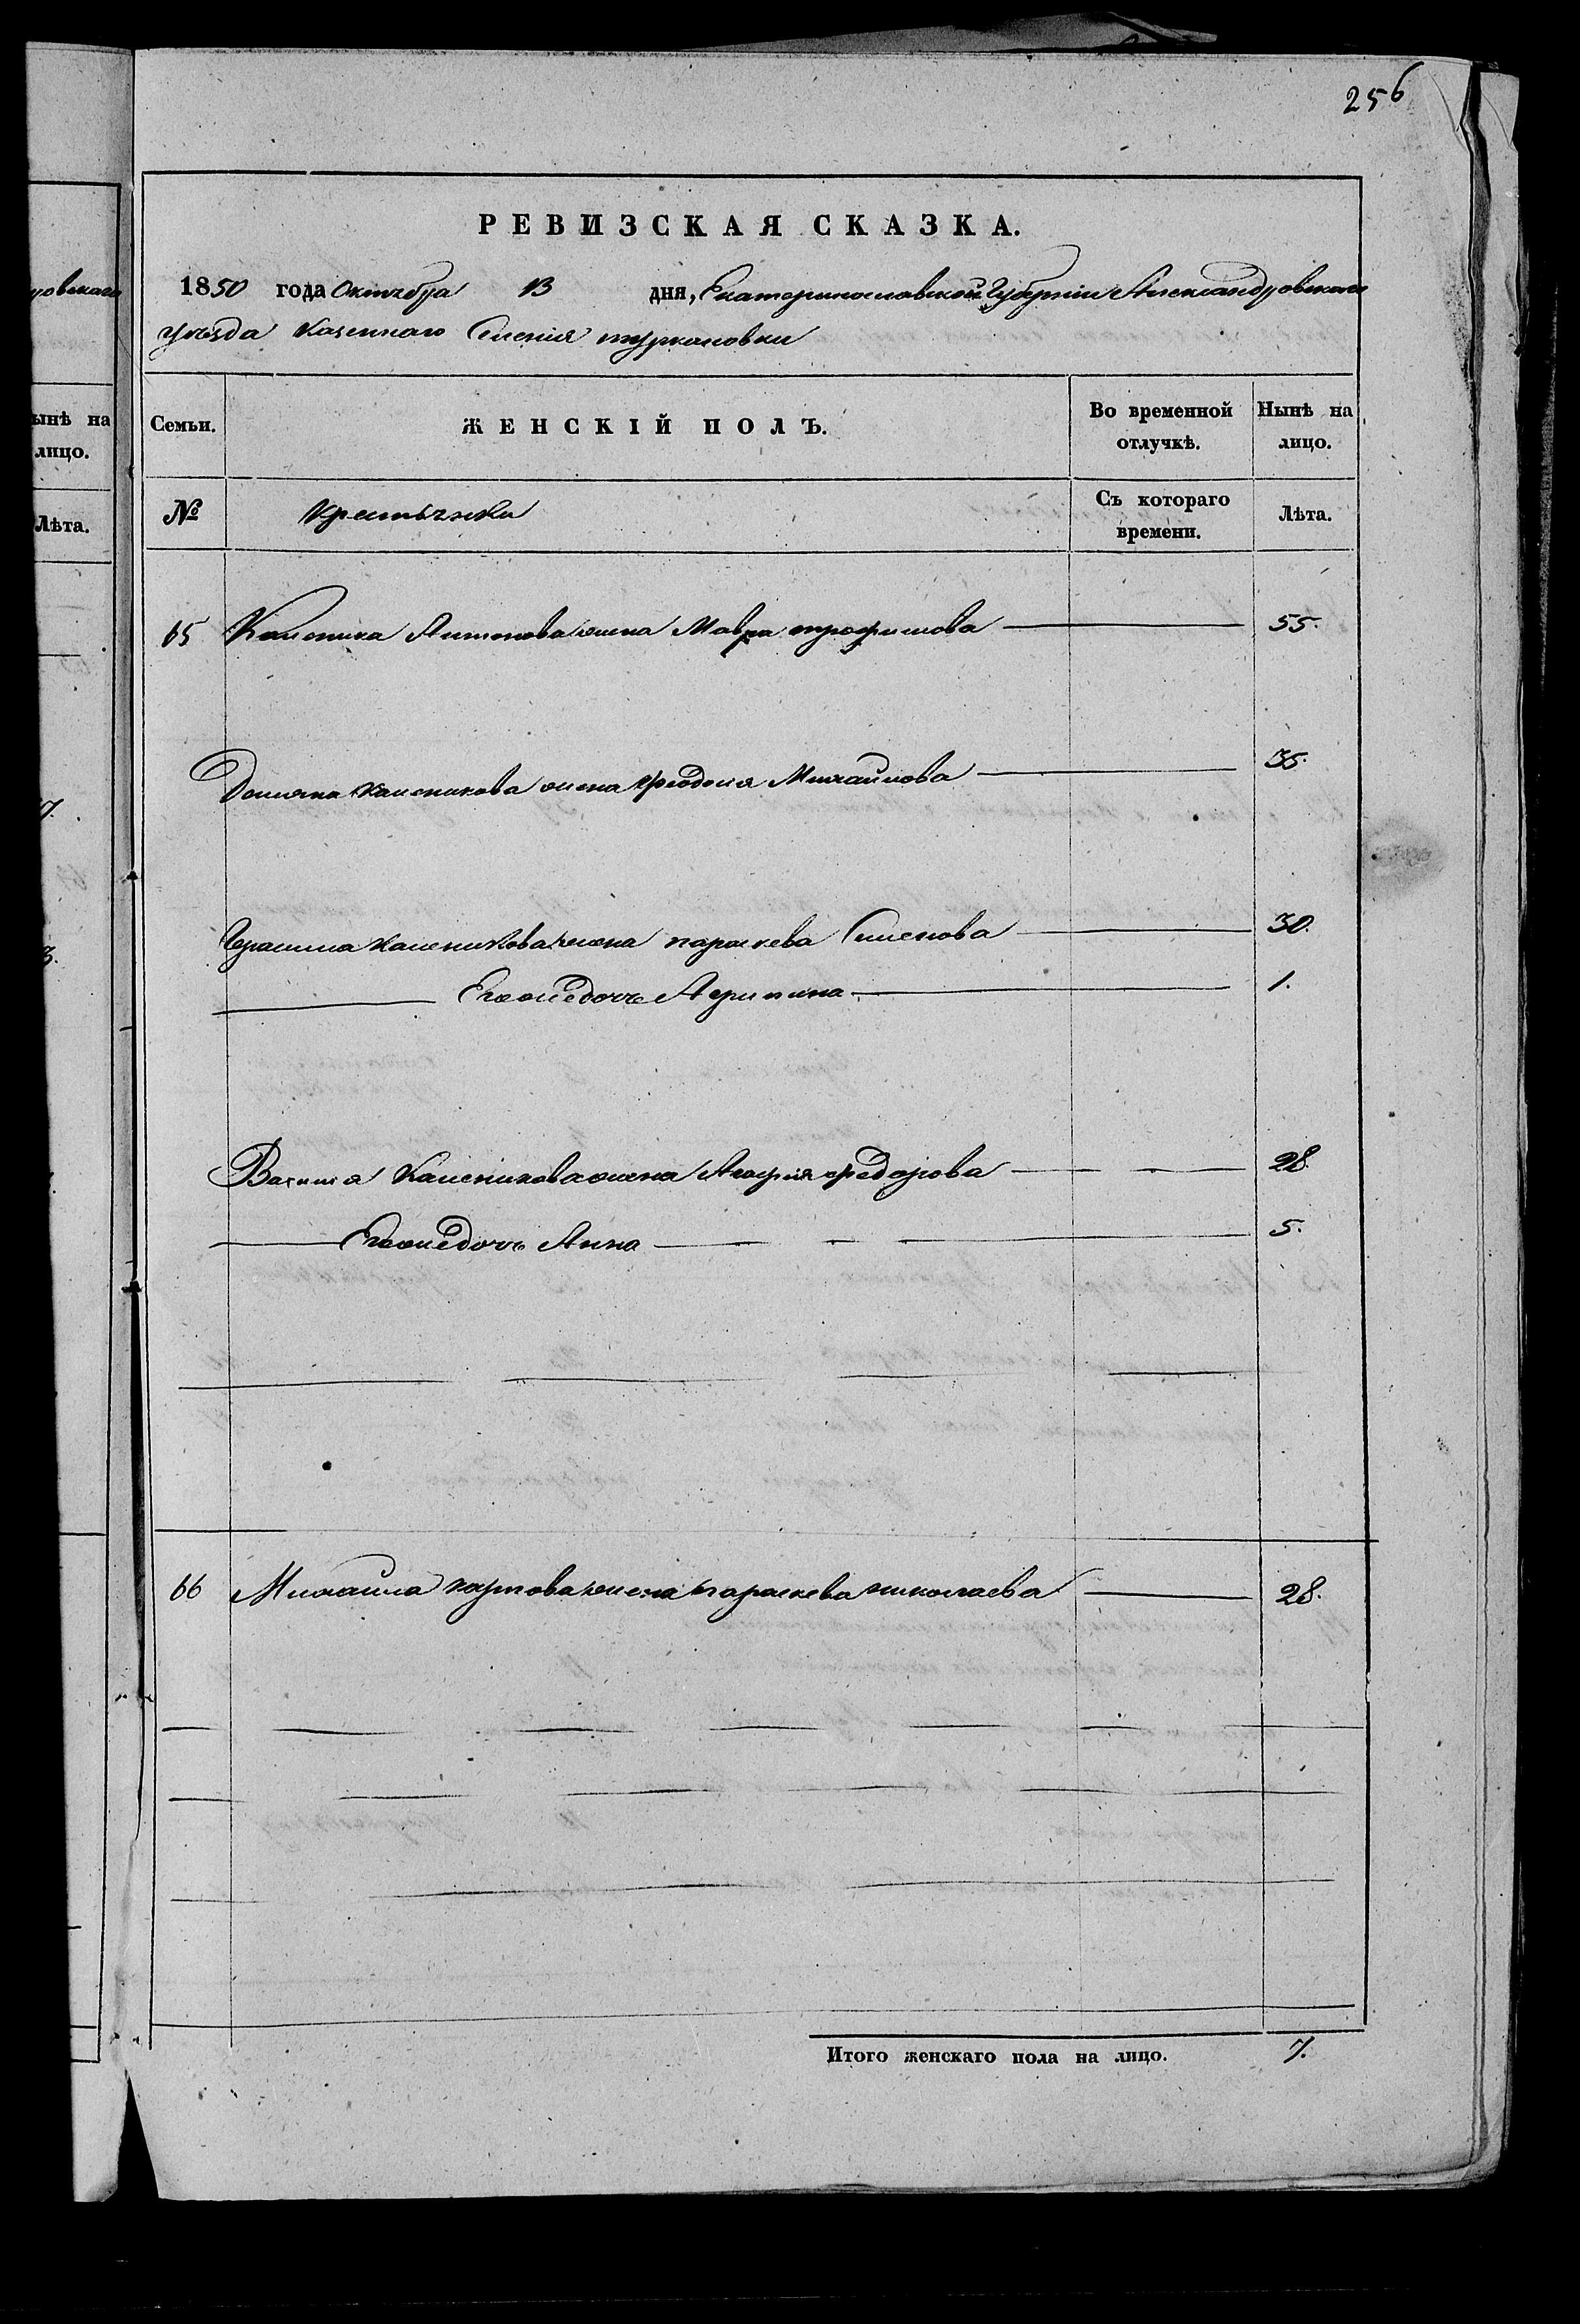 256
РЕВИЗСКАЯ СКАЗКА.
1850 года Октября 13 дня, Екатеринославской Губернiи Александровскаго
уѣзда Казеннаго Селенiя туркановки
Семьи. ЖЕНСКIЙ ПОЛЪ. Во временной отлучкѣ. Нынѣ на лицо.
№ Крестьянки Съ котораго времени. Лѣта.
65 Каленика Антонова жена Мавра трофимова 55.
Домяна Каленикова жена Феодосия Михайлова 35.
Герасима Каленикова жена параскева Семенова 30.
Его же дочь Агрипина 1.
Василя Каленикова жена Агафия федорова 28.
Его же дочь Анна 5.
66 Михаила картова жена параскева николаева 28.
Итого женскаго пола на лицо. 7.
ынѣ на
лицо.
Лѣта.